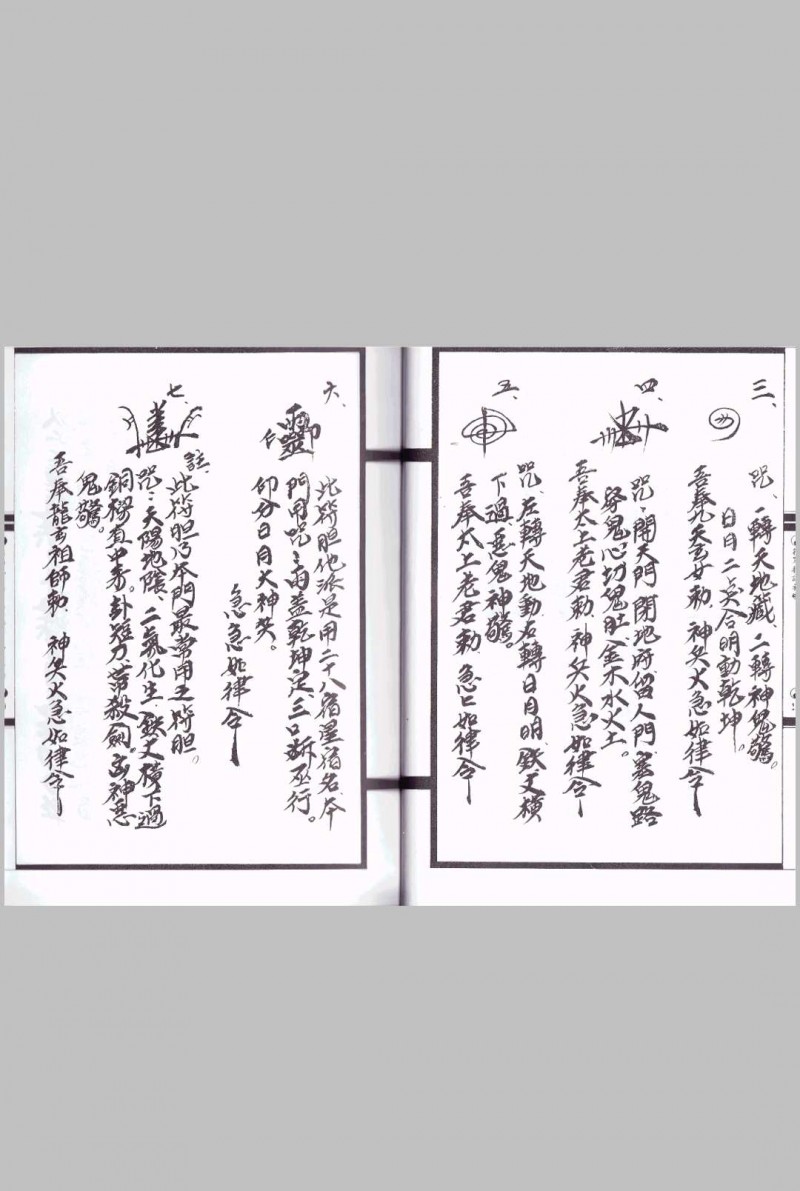 三、
咒、一轉天地藏、二轉神鬼驚。
日月二炁合明動乾坤。
吾奉九天玄女勅、神兵火急如律令
四、
咒：開天門、閉地府、留人門、塞鬼路
穿鬼心、切鬼肚、金木水火土。
吾奉太上老君勅、神兵火急如律令
五、
咒、左轉天地動、右轉日月明、鉄叉橫
下過、惡鬼神驚。
吾奉太上老君勅、急急如律令
六、
此符胆他派是用二十八宿星宿名、本
門用咒：雨蓋乾坤定、三口巫行。
卯分日月大神。
急急如律令
七、
註、此符胆乃本門最常用之符胆。
咒：天陽地陰、二氣化生、鉄叉橫下過
銅楊直中。刀、帶殺劍。凶神惡
鬼驚。
吾奉龍玄祖師勅、神兵火急如律令